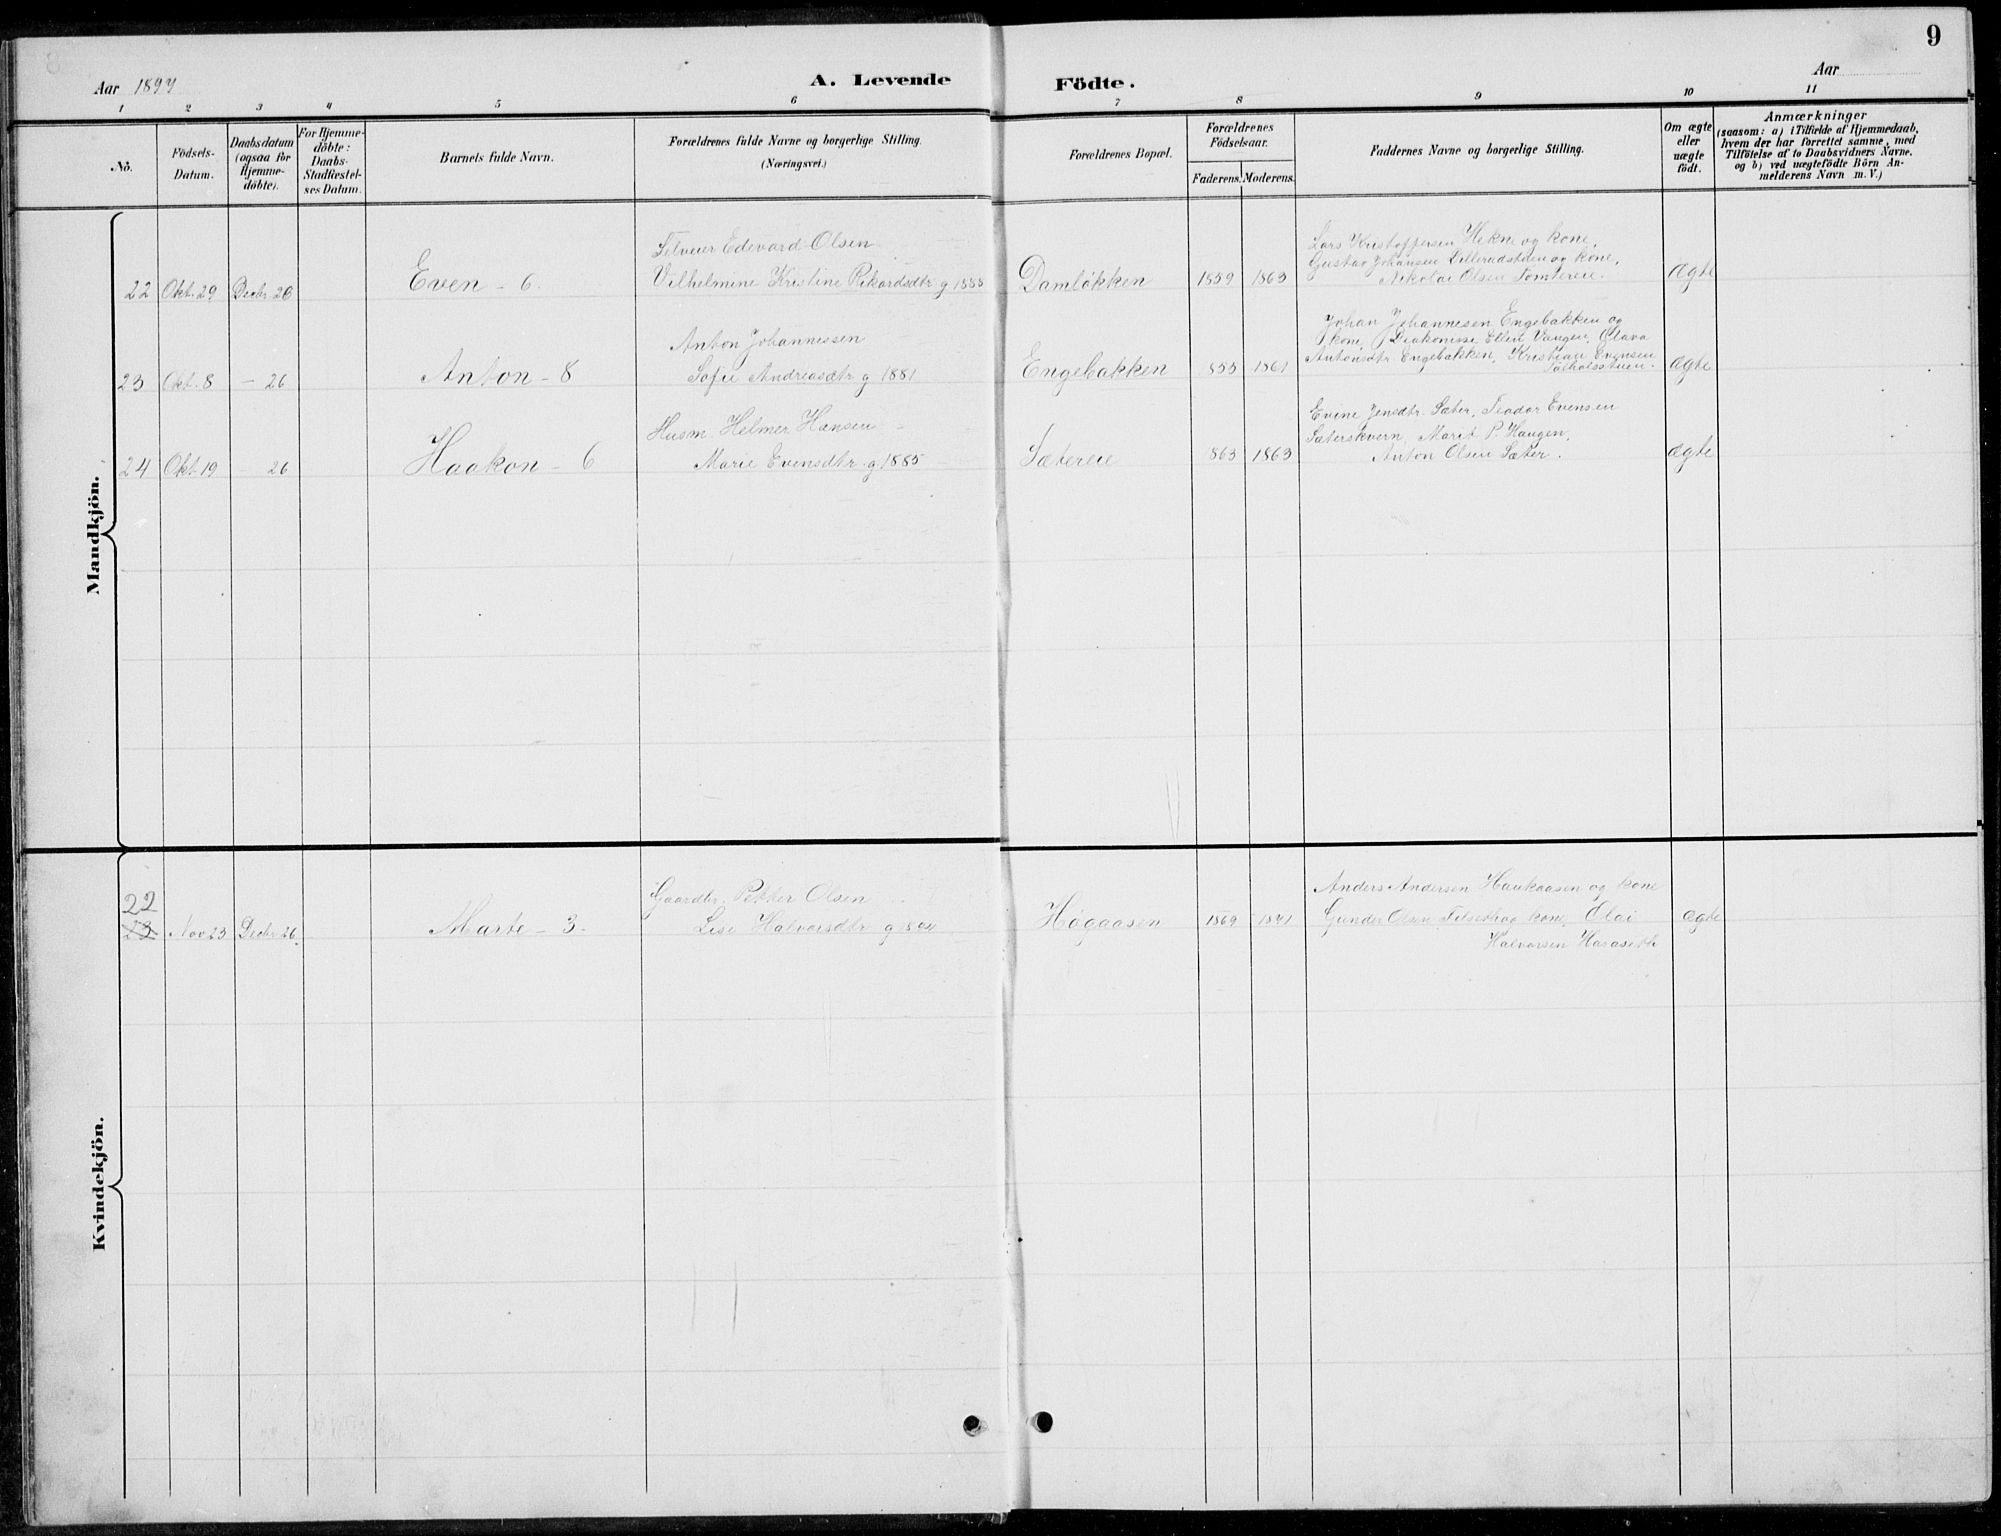 9
Aar 1897
A. Levende Födte.
Aar
1 2 3 4 5 6 7 8 9 10 11
No.
Födsels-Datum.
Daabsdatum (ogsaa for Hjemme-döbte).
For Hjemme-döbte: Daabs-Stadfæstel-ses Datum.
Barnets fulde Navn.
Forældrenes fulde Navne og borgerlige Stilling.
(Næringsvei.)
Forældrenes Bopæl.
Forældrenes Födselsaar.
Faderens. Moderens.
Faddernes Navne og borgerlige Stilling.
Om ægte eller uægte födt.
Anmærkninger
(saasom: a) i Tilfælde af Hjemmedaab,
hvem der har forrettet samme, med
Tilföielse af to Daabsvidners Navne.
og b) ved uægtefödte Börn An-
melderens Navn m. V.)
Mandkjön.
Selveier Edevard Olsen
Lars Kristoffersen Hekne og kone,
Gustav Johansen og kone,
22 Okt. 29 Decbr 26 Even - 6. Vilhelmine Kristine Rikardsdtr g 1885 Damløkken 1859 1863 Nikolai Olsen Tomtereie. Ægte
Anton Johannissen
Johan Johannesen Engebakken og
kone, Diakonisse Ellen Vangen, Olava
Antonsdtr Engebakken, Kristian Evensen
23 Okt. 8 - 26 Anton - 8 Sofie Andreasdtr g 1881 Engebakken 855 1861 Ægte
Husm. Helmer Hansen
Evine Jensdtr. Sæter, Teodor Evensen
Sæterskvern, Marit P. Haugen,
24 Okt. 19 - 26 Haakon - 6 Marie Evensdtr. g 1885 Sætereie 863 1863 Anton Olsen Sæter. Ægte
Kvindekjön.
22
Gaardbr. Petter Olsen
Anders Andersen Haukaasen og kone
23 Nov 23 Decbr. 26. Marte - 3. Lise Halvorsdtr g Høgaasen 1869 1871 Gunder Olsen kone, Olai Ægte
Halvorsen Haraseth